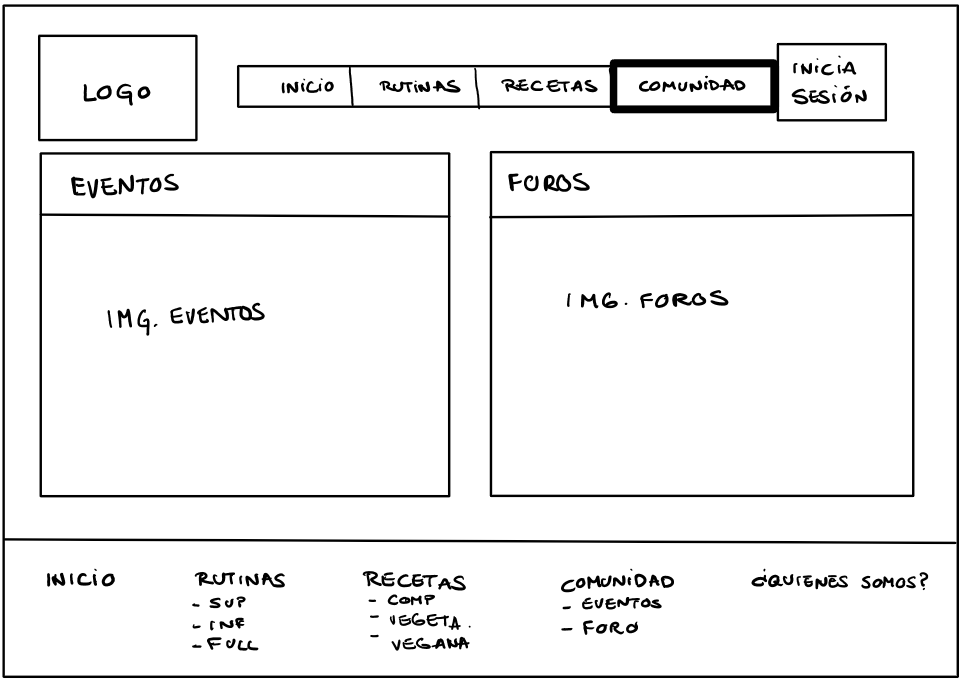 LOGO
INICIO
RUTINAS
RECETAS
COMUNIDAD
INICIA
SESIÓN
EVENTOS
FOROS
IMG. EVENTOS
IMG. FOROS
INICIO
RUTINAS
- SUP
- INF
- FULL
RECETAS
- COMP
- VEGETA.
- VEGANA
COMUNIDAD
- EVENTOS
- FORO
¿QUIENES SOMOS?